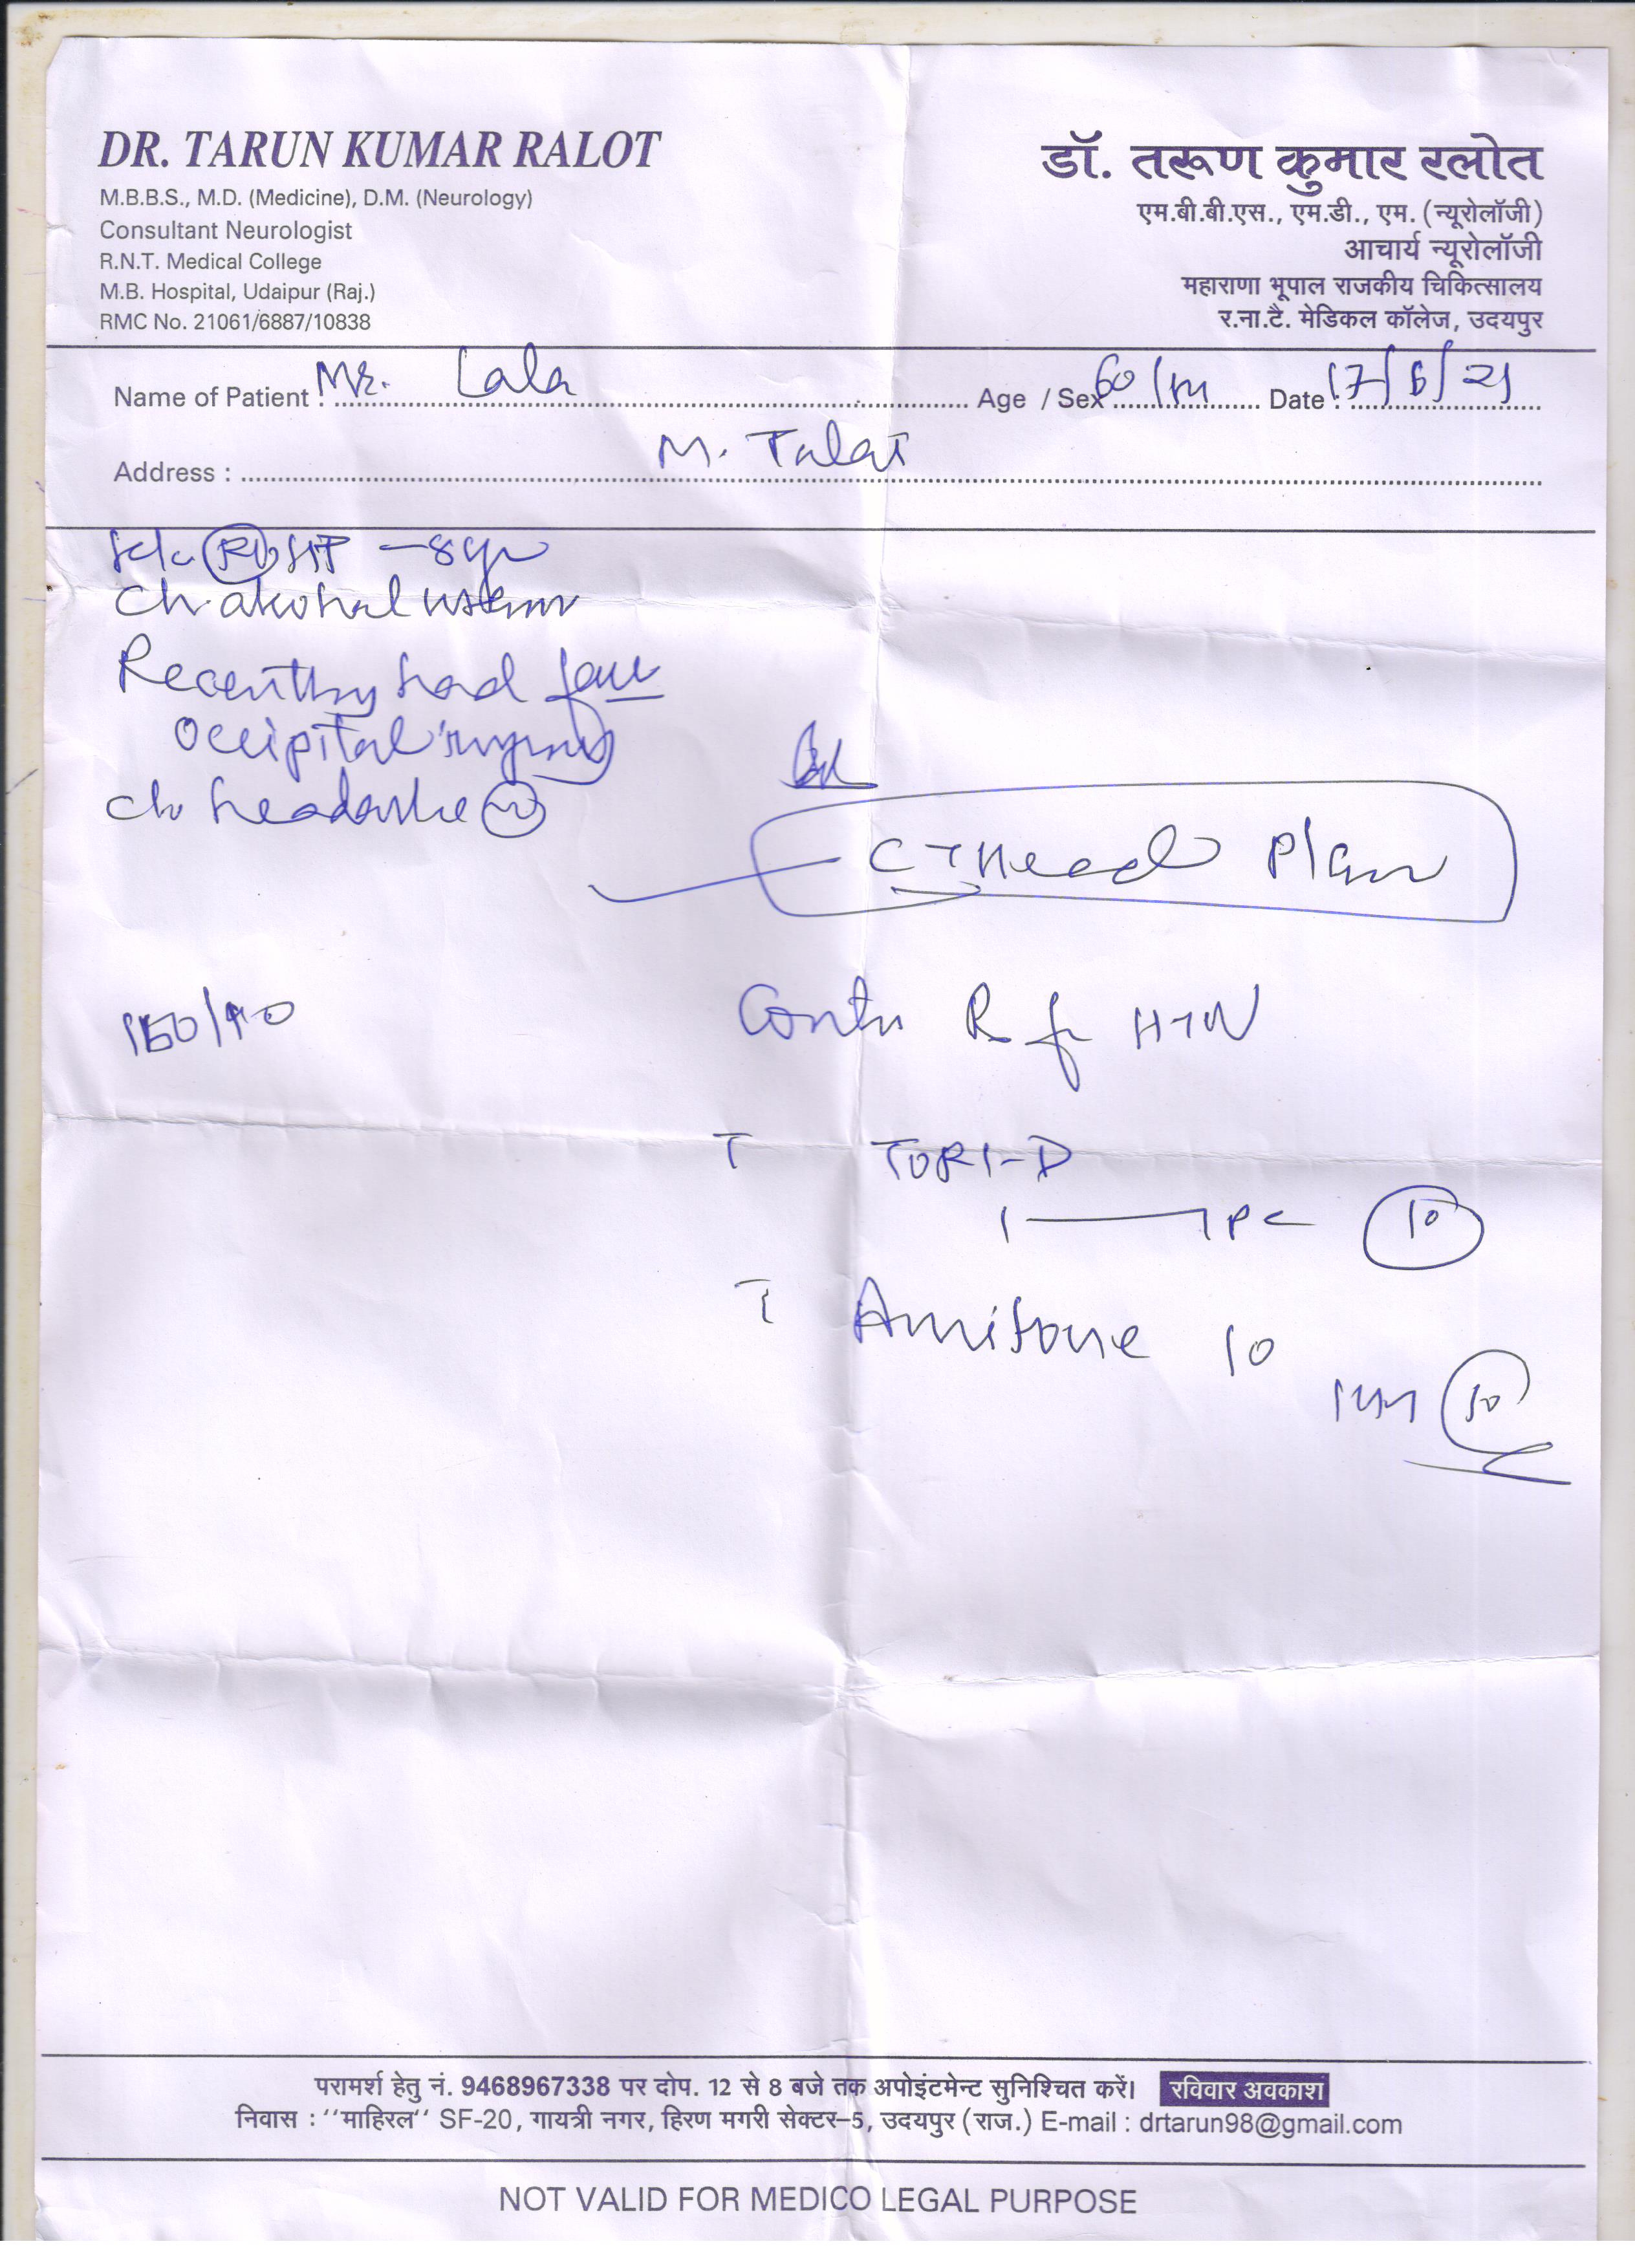 DR. TARUN KUMAR RALOT
M.B.B.S., M.D. (Medicine), D.M. (Neurology)
Consultant Neurologist
R.N.T. Medical College
M.B. Hospital, Udaipur (Raj.)
RMC No. 21061/6887/10838
डॉ. तरूण कुमार रलोत
एम.बी.बी.एस., एम.डी., एम. (न्यूरोलॉजी)
आचार्य न्यूरोलॉजी
महाराणा भूपाल राजकीय चिकित्सालय
र.ना.टै. मेडिकल कॉलेज, उदयपुर
Name of Patient : Mr. Lala Age / Sex 60/M Date : 17/6/21
Address : M. Talai
Recently had fall
Occipital injury
headache
CT Head Plain
160/90
R for HTN
T TORI-D
1 1 PC 10
T 10
10
परामर्श हेतु नं. 9468967338 पर दोप. 12 से 8 बजे तक अपोइंटमेन्ट सुनिश्चित करें। रविवार अवकाश
निवास : ''माहिरल'' SF-20, गायत्री नगर, हिरण मगरी सेक्टर-5, उदयपुर (राज.) E-mail : drtarun98@gmail.com
NOT VALID FOR MEDICO LEGAL PURPOSE